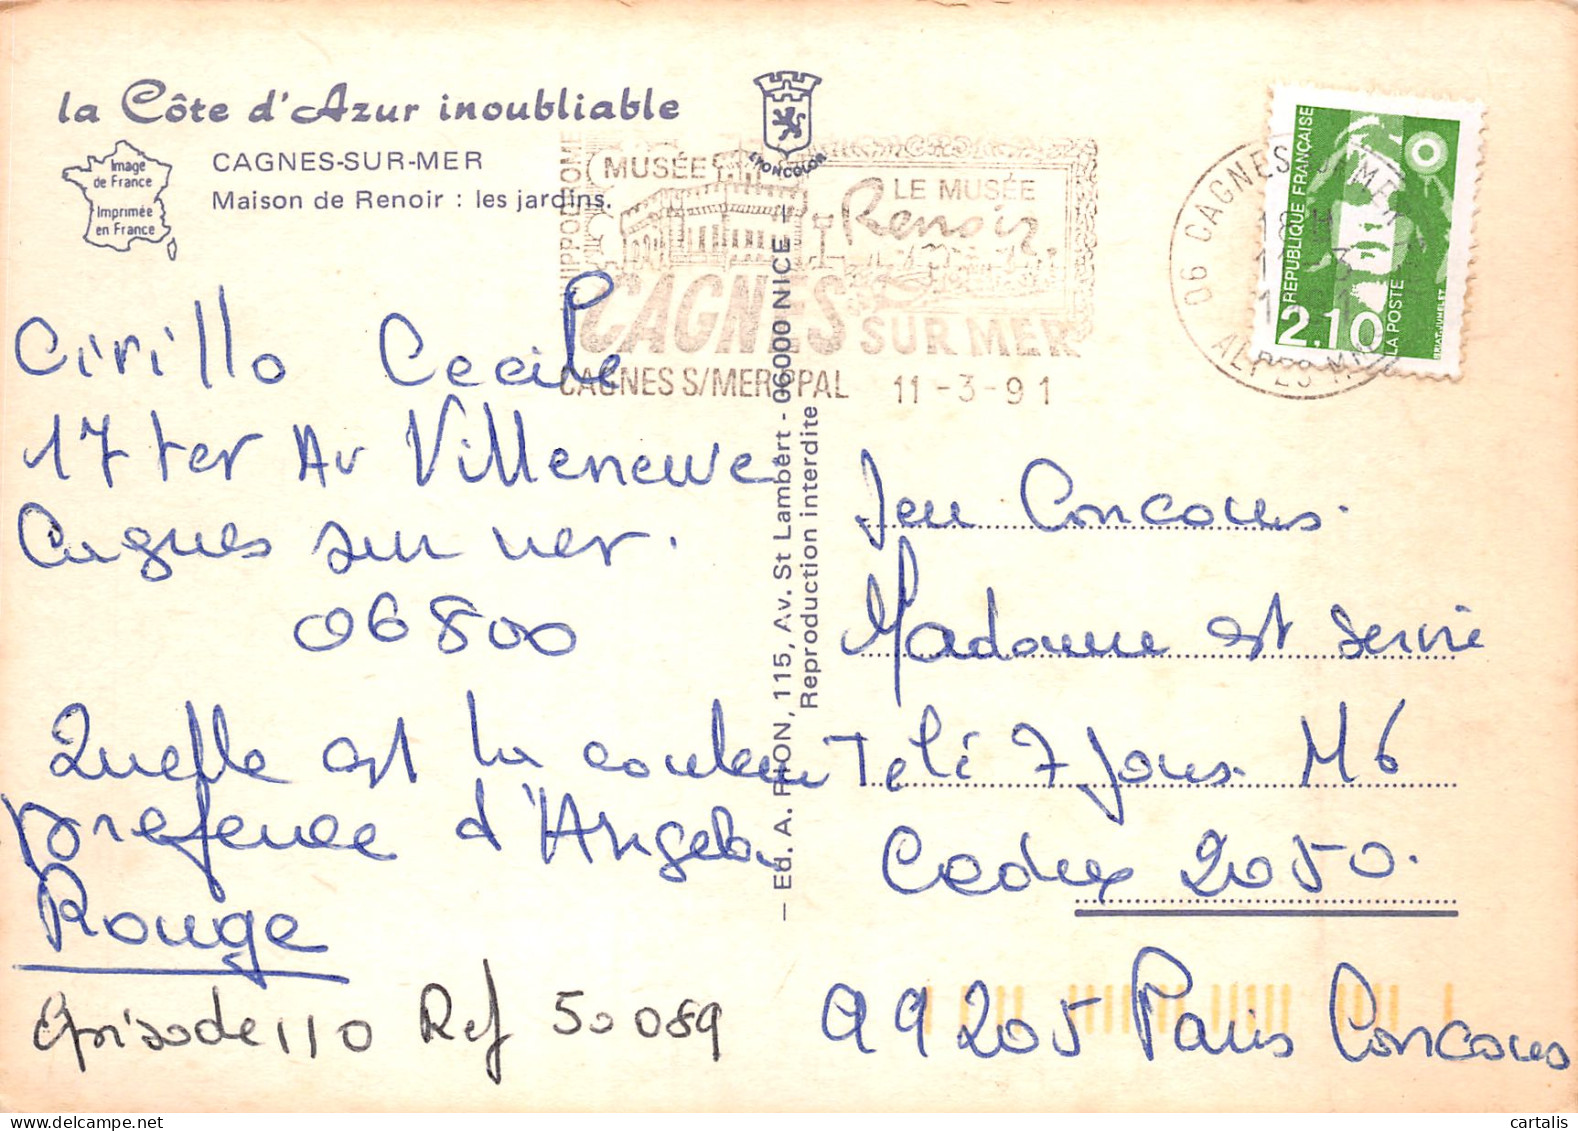 la Côte d'Azur inoubliable
Image
de France
Imprimée
en France
CAGNES-SUR-MER
Maison de Renoir : les jardins.
LYONCOLOR
MUSÉE
LE MUSÉE
Renoir
CAGNES SUR MER
CAGNES S/MER PPAL 11-3-91
06 CAGNES SUR MER
18 H
ALPES MMES
RÉPUBLIQUE FRANÇAISE
2,10
LA POSTE
BRIAT-JUMELET
Cirillo Cecile
17 ter Av Villeneuve
Cagnes sur mer.
06800
Quelle est la couleur
preference d'Angela
Rouge
episode 110 Ref 50089
– Ed. A. PION, 115, Av. St Lambert - 06000 NICE –
Reproduction interdite
Jeu Concours.
Madame est servie
Teli 7 Jours M6
Cedex 2050.
99205 Paris Concours
cartalis